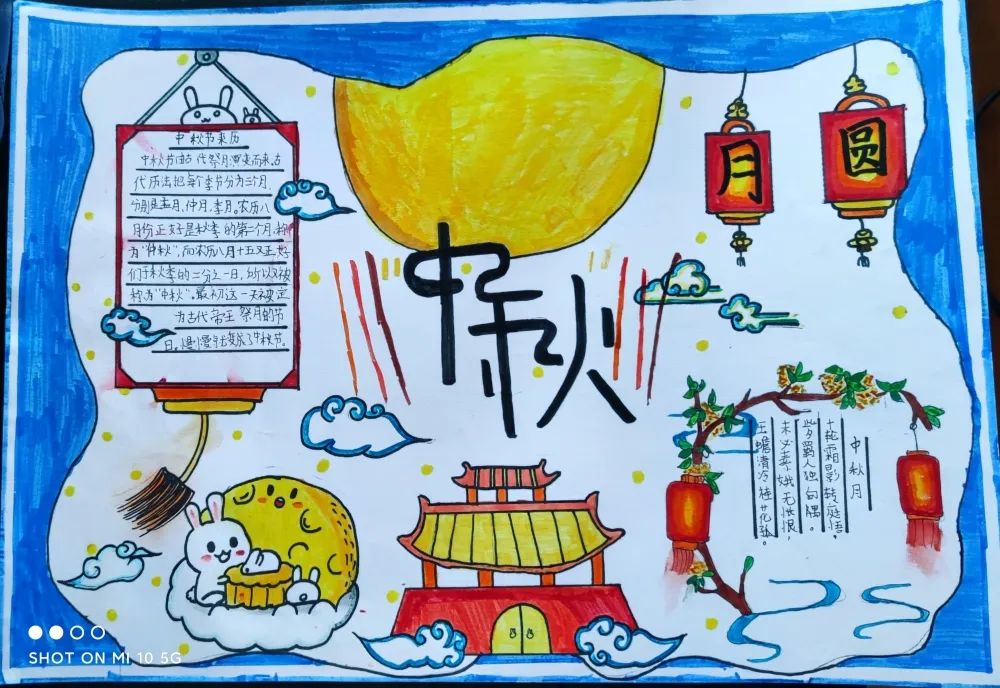 中秋节来历
中秋节由古代祭月演变而来。古
代历法把每个季节分为三个月,
分别是孟月、仲月、季月。农历八
月份正好是秋季的第二个月,称
为“仲秋”,而农历八月十五又正好
们于秋季的二分之一日,所以又被
称为“中秋”。最初这一天被定
为古代帝王祭月的节
日。慢慢
变成了中秋节。
中秋
月
圆
中秋月
十轮霜影转庭梧,
此夕羁人独向隅。
未必素娥无怅恨,
玉蟾清冷桂花孤。
SHOT ON MI 10 5G